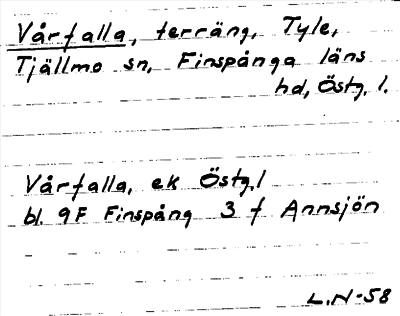 Vårfalla, terräng, Tyle,
Tjällmo sn, Finspånga läns
hd, Östg. l.
Vårfalla, ek Östg.l
bl. 9F Finspång 3 f Annsjön
L.N-58